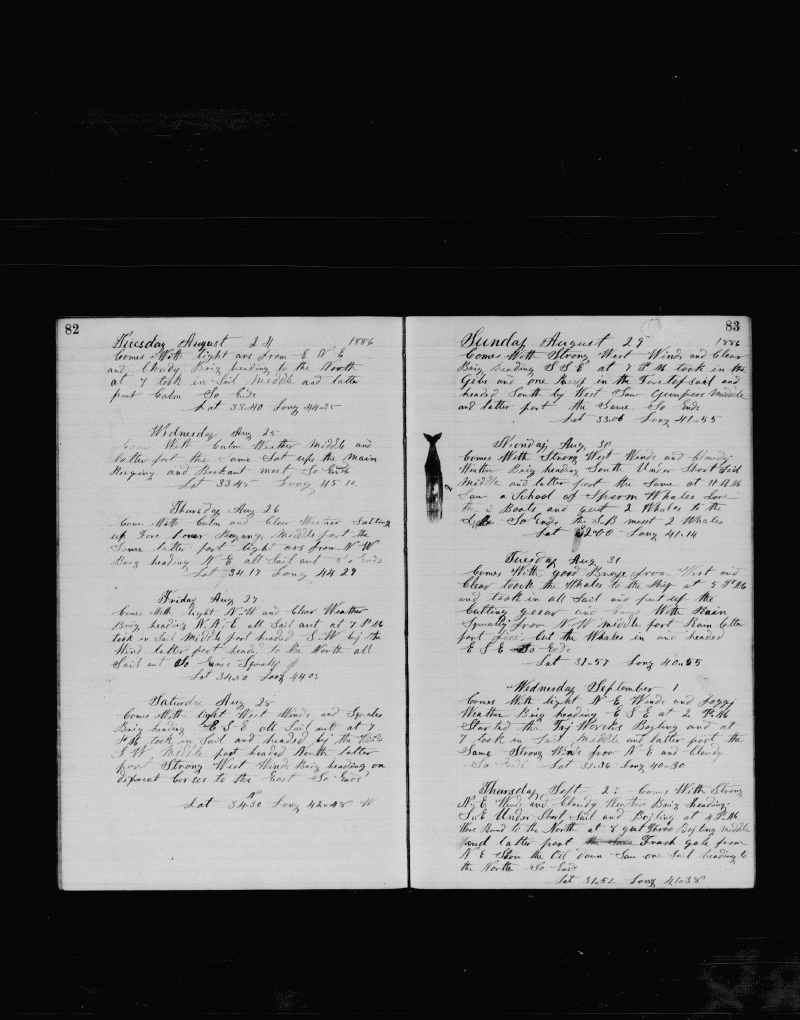 82
Tuesday August 24 1886
Comes With light airs from E N E
and Cloudy Brig heading to the North
at 7 took in Sail Middle and latter
part Calm So Ends
Lat 33.40 Long 44-35
Wednesday Aug 25
With Calm Weather Middle and
latter part the Same Sat up the Main
Reiging and Beckaut meet So Ends
Lat 33-45 Long 45 10
Thursday Aug 26
Come With Calm and Clear Weather Satting
up Fore lower Reging, Middle part the
Same latter part light airs from N W
Brig heading N E all Sail out So Ends
Lat 34 17 Long 44 29
Friday Aug 27
Come With light N W and Clear Weather
Brig heading N.N.E all Sail out at 7 P M
took in Sail Middle part headed S.W by the
Wind latter part headg to the North all
Sail out So Ends Squaly
Lat 34-50 Long 44 03
Saturday Aug 28
Comes With light West Winds and Squales
Brig heading E S E all Sail out at 7
P M took in Sail and headed by the Wind
S W Middle part headed North latter
part Strong West Wind Brig heading on
difreat Corses to the East So Ends
Lat 34.30 Long 42-48 W
83
Sunday August 29 1886
Comes With Strong West Winds and Clear
Brig heading S S E at 7 P M took in the
Gibs and one Reef in the Foretopsail and
headed South by West Saw Gumpers Middle
and latter part the Same So Ends
Lat 33.06 Long 41-55
Monday Aug 30
Comes With Strong West Winds and Cloudy
Weather Brig heading South Under Short Sail
Middle and latter part the Same at 11 A M
Saw a School of Sperm Whales Low
2 Boats and gut 2 Whales to the
So Ends the S.B meet 2 Whales
Lat 32-00 Long 41-14
Tuesday Aug 31
Comes With good Breeze from West and
Clear took the Whales to the Ship at 5 P M
and took in all Sail and put up the
Cutting gear and With Rain
Squaly from N W middle part Rain latter
part cut the Whales in and headed
E S E So Ends
Lat 31-57 Long 40-55
Wednesday September 1
Comes With light N E Winds and Foggy
Weather Brig heading E S E at 2 P M
Started the Try Workes Boyling and at
7 took in Sail Middle and latter part the
Same Strong Winds from N E and Cloudy
So Ends Lat 31-36 Long 40-30
Thursday Sept 2 Comes With Strong
N.E Winds and Cloudy Weather Brig heading
S.E Under Short Sail and Boyling at 4 P M
Wore Round to the North at 8 gut threw Boyling Middle
and latter part Frash gale from
N E Stow the Oil down Saw one Sail heading to
the North So Ends
Lat 31-52 Long 41-38